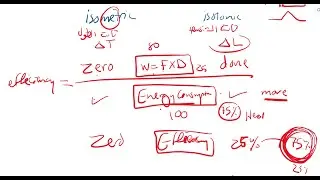 isometric isotonic
ΔT ΔL
80
Zero W=FxD 25 done
efficiency
Energy Consumption more
100 75% Heat
Zero Efficiency 25% 75%
25%